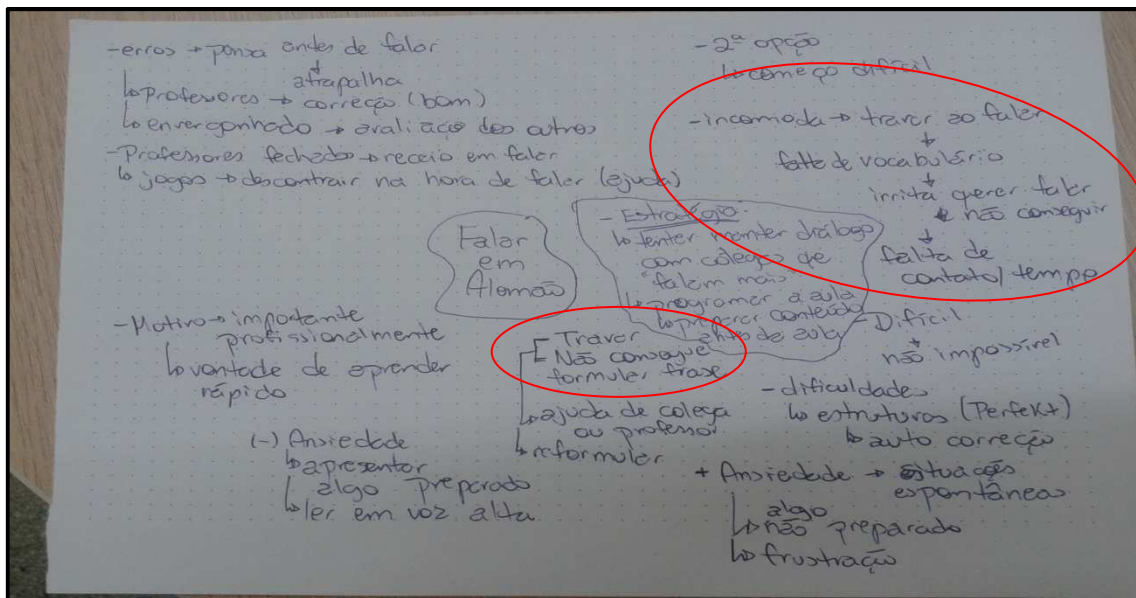 -erros → pensa antes de falar
↓
atrapalha
↳ Professores → correção (bom)
↳ envergonhado → avaliação dos outros
-Professores fechados → receio em falar
↳ jogos → descontrair na hora de falar (ajuda)
-2ª opção
↳ começo difícil
-incomoda → travar ao falar
↓
falta de vocabulário
↓
irrita querer falar
e não conseguir
↓
falta de
contato/tempo
Falar
em
Alemão
-Estratégia:
↳ tenter manter diálogo
com colegas que
"falam mais"
↳ programar a aula
↳ preparar conteúdo
antes de aula
-Motivo → importante
profissionalmente
↳ vontade de aprender
rápido
Travar
Não consegue
formular frase
↳ ajuda de colega
ou professor
↳ reformular
-Difícil
↓
não impossível
-dificuldades
↳ estruturas (Perfekt)
↳ auto correção
(-) Ansiedade
↳ apresentar
algo preparado
↳ ler em voz alta
+ Ansiedade → situações
espontâneas
algo
↳ não preparado
↳ frustração